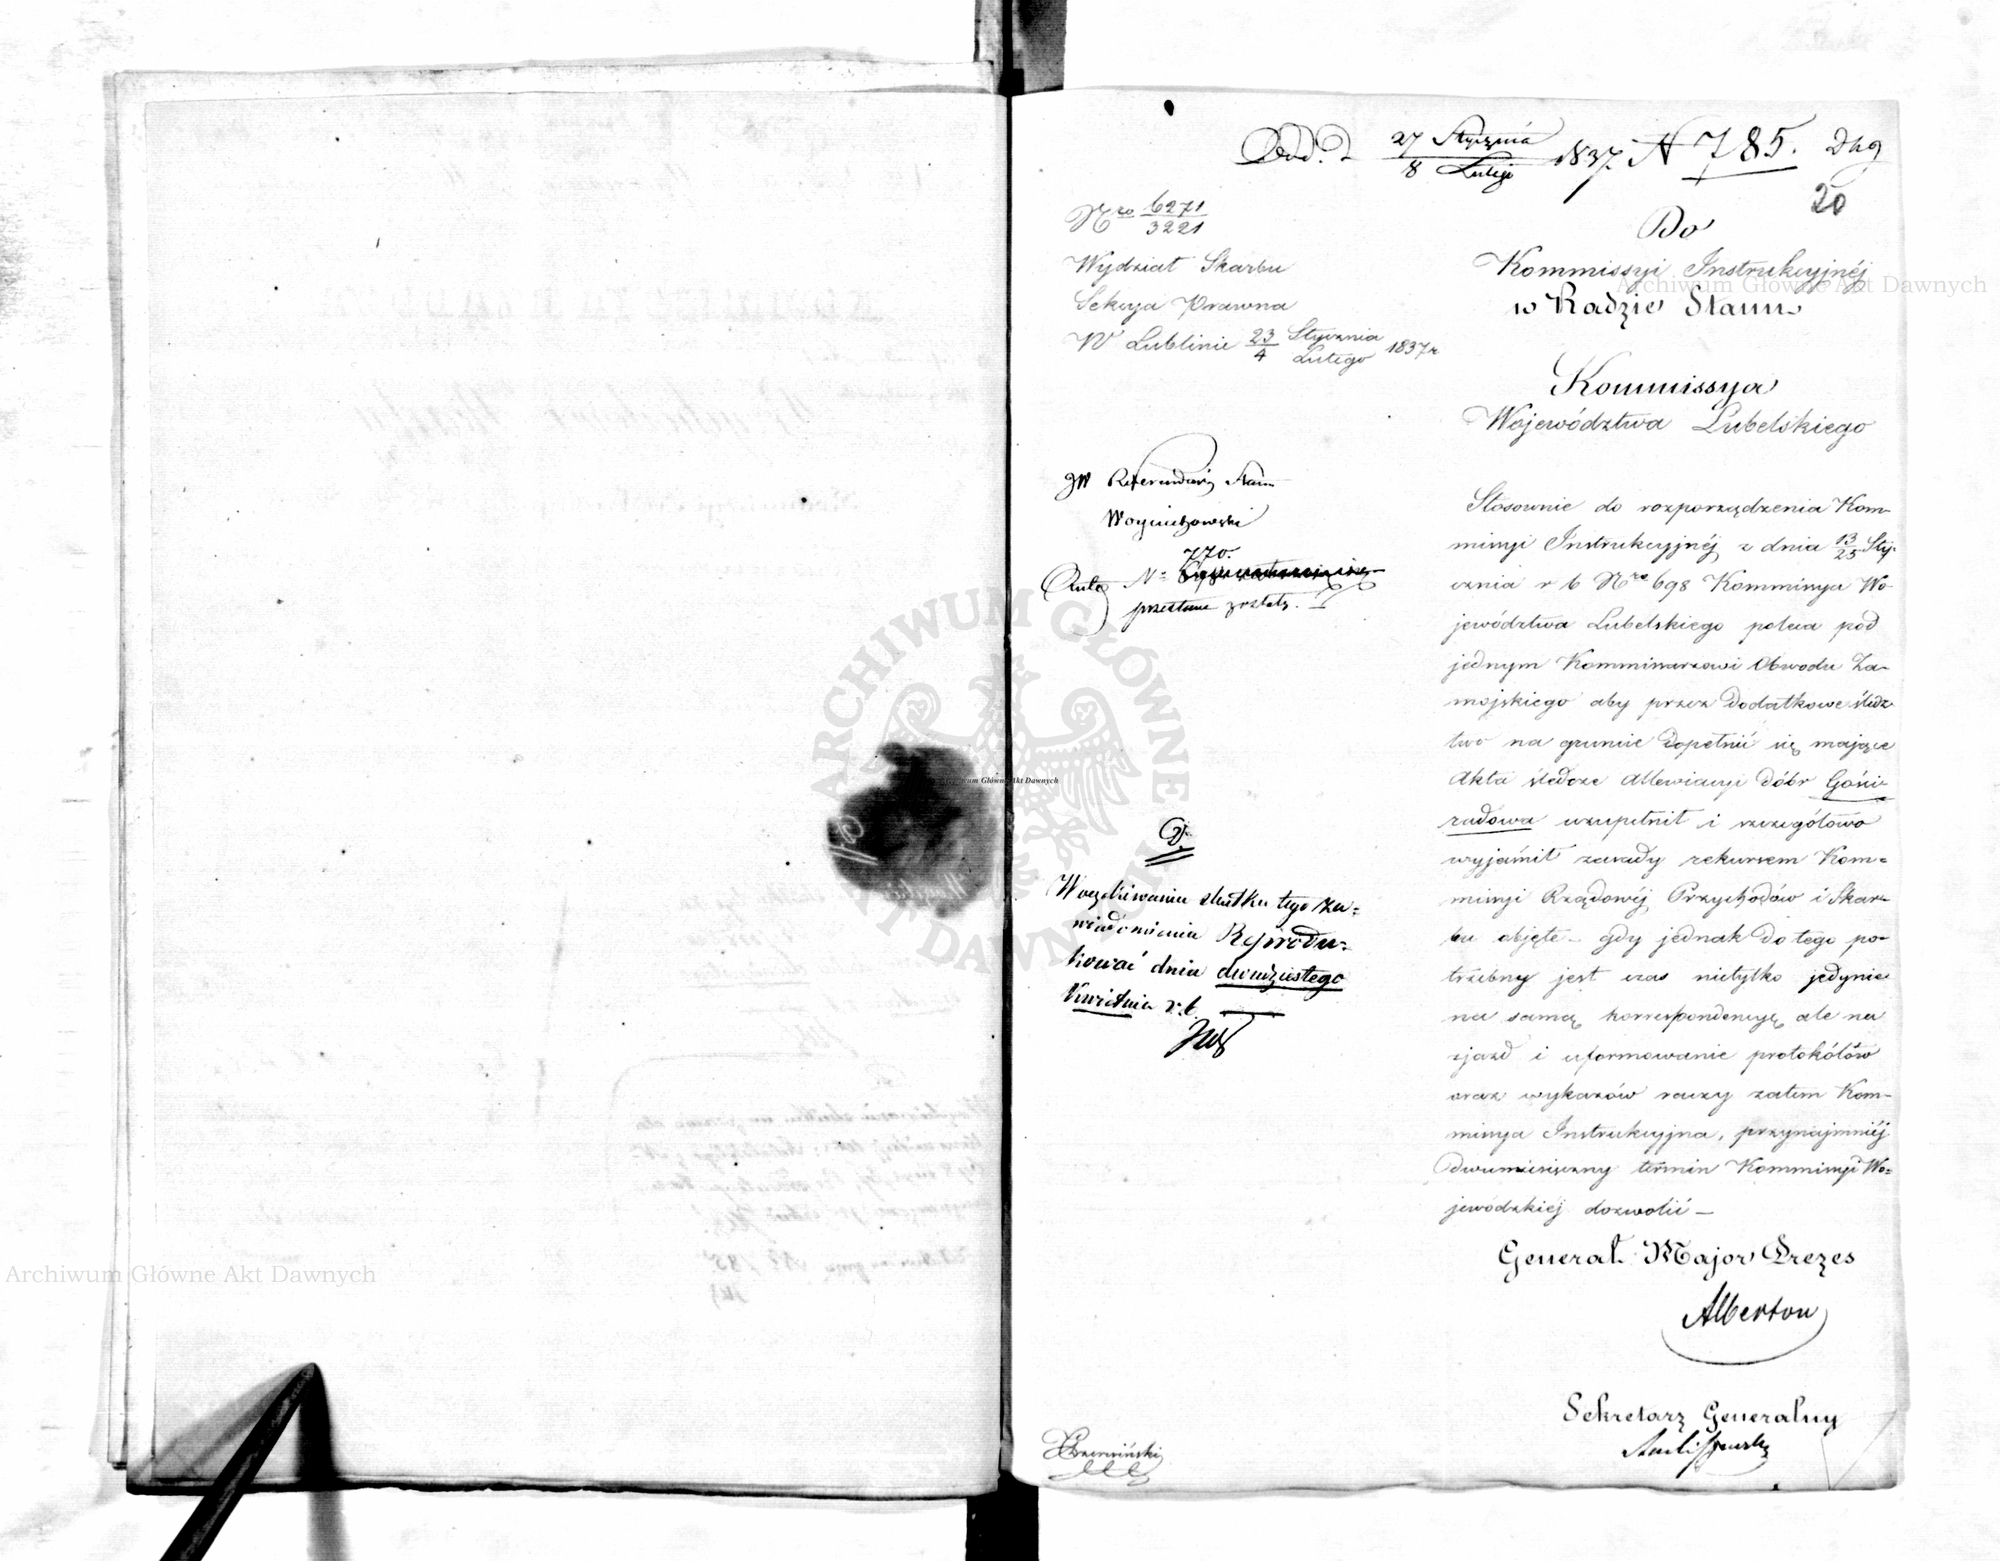 27 Stycznia
8 Lutego 1837. N 785.
20
Nro 6271
3221
Wydział Skarbu
Sekcya Prawna
W Lublinie 23/4 Stycznia Lutego 1837 r
Do
Kommissyi Instrukcyjnéj
w Radzie Stanu
Kommissya
Województwa Lubelskiego
JW Referendarz Stanu
Woyciechowski
770.
Akta N=
przesłane zostały.
Stosownie do rozporządzenia Kom-
missyi Instrukcyjnéj z dnia 13/25 Sty-
cznia r b Nro 698 Kommissya Wo
jewództwa Lubelskiego poleca pod
jednym Kommissarzowi Obwodu Za-
mojskiego aby przez dodatkowe śledz
two na gruncie dopełnić się mające
Akta śledcze Allewiacyi dóbr Gości-
radowa uzupełnił i szczegółowo
wyjaśnił zasady rekursem Kom=
missyi Rządowéj Przychodów i Skar-
bu objęte - gdy jednak do tego po-
trzebny jest czas nietylko jedynie
na samą korrespondencyę ale na
zjazd i uformowanie protokółów
oraz wykazów raczy zatem Kom-
missya Instrukcyjna, przynajmniéj
dwumiesięczny termin Kommissyi Wo=
jewódzkiej dozwolić —
W oczekiwaniu skutku tego za=
wiadomienia Reprodu=
kować dnia dwudziestego
Kwietnia r.b.
Generał Major Prezes
Alberton
Sekretarz Generalny
Czerwiński
Archiwum Główne Akt Dawnych
Archiwum Główne Akt Dawnych
Archiwum Główne Akt Dawnych
ARCHIWUM GŁÓWNE AKT DAWNYCH